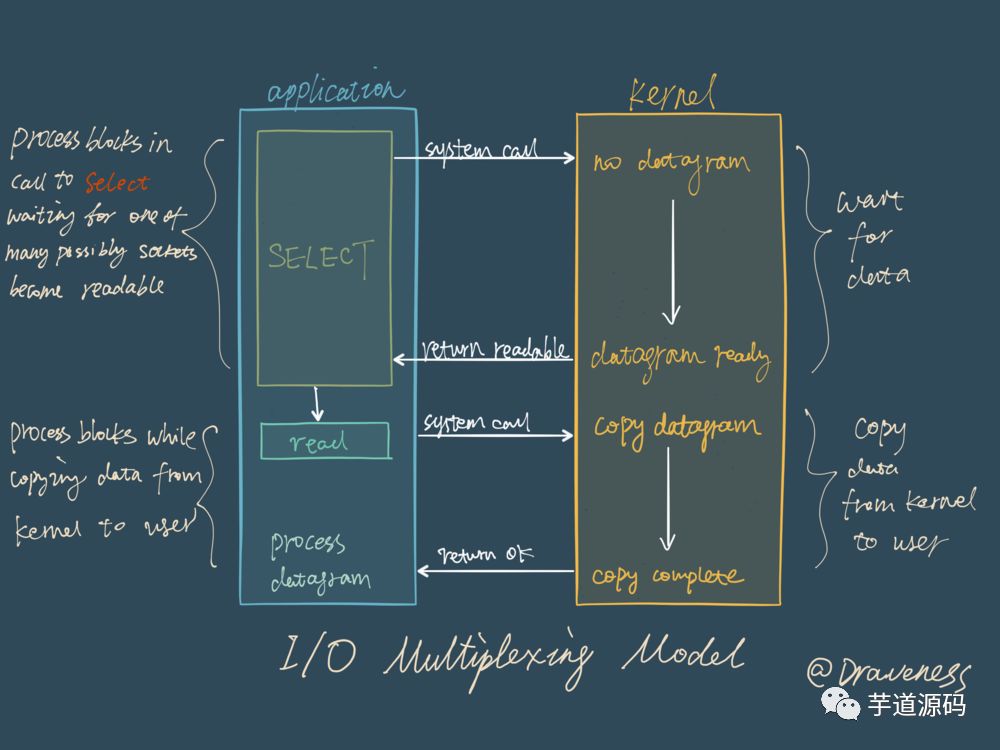 application
Kernel
process blocks in
call to select
waiting for one of
many possibly sockets
become readable
SELECT
system call
no datagram
wait
for
data
return readable
datagram ready
process blocks while
copying data from
kernel to user
read
system call
copy datagram
copy
data
from kernel
to user
process
datagram
return ok
copy complete
I/O Multiplexing Model
@Draveness
芋道源码